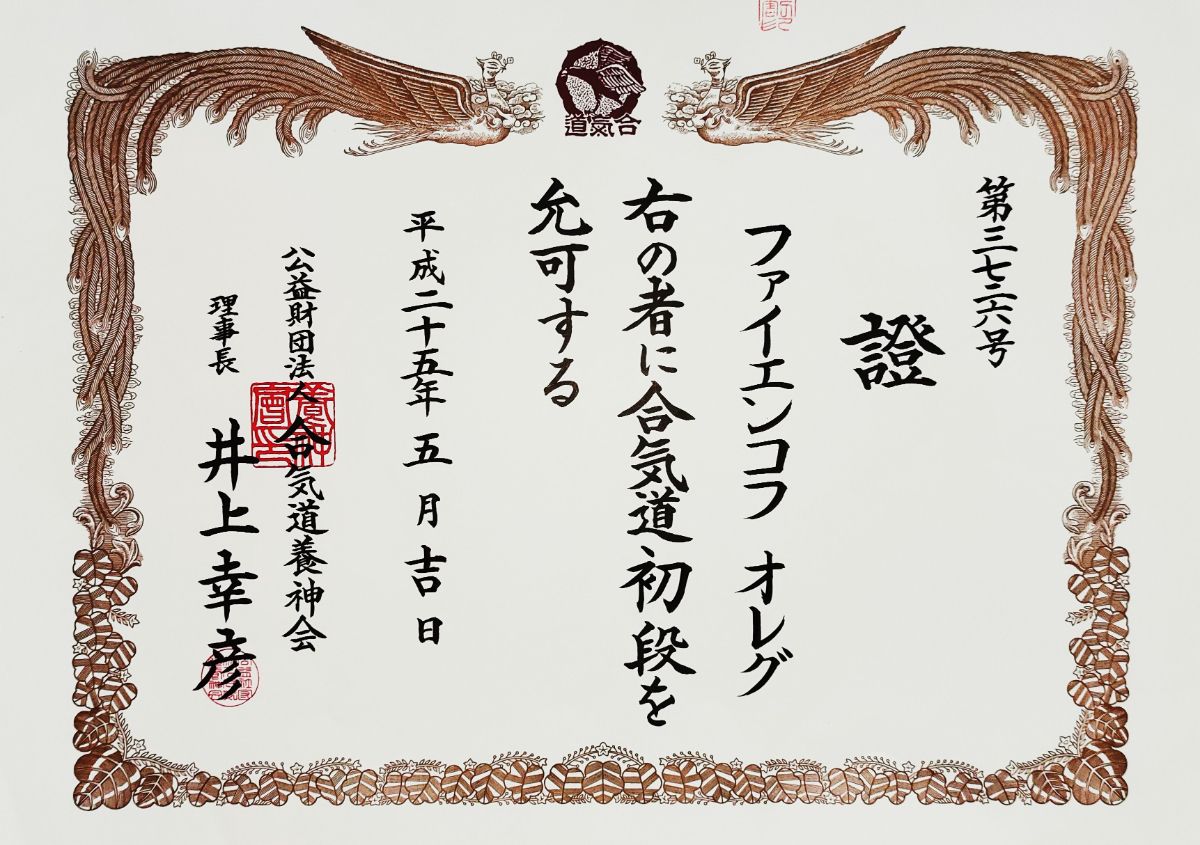 合氣道
第三七二六号
證
ファイエンコフ オレグ
右の者に合気道初段を
允可する
平成二十五年 五月吉日
公益財団法人 合気道養神会
理事長 井上幸彦